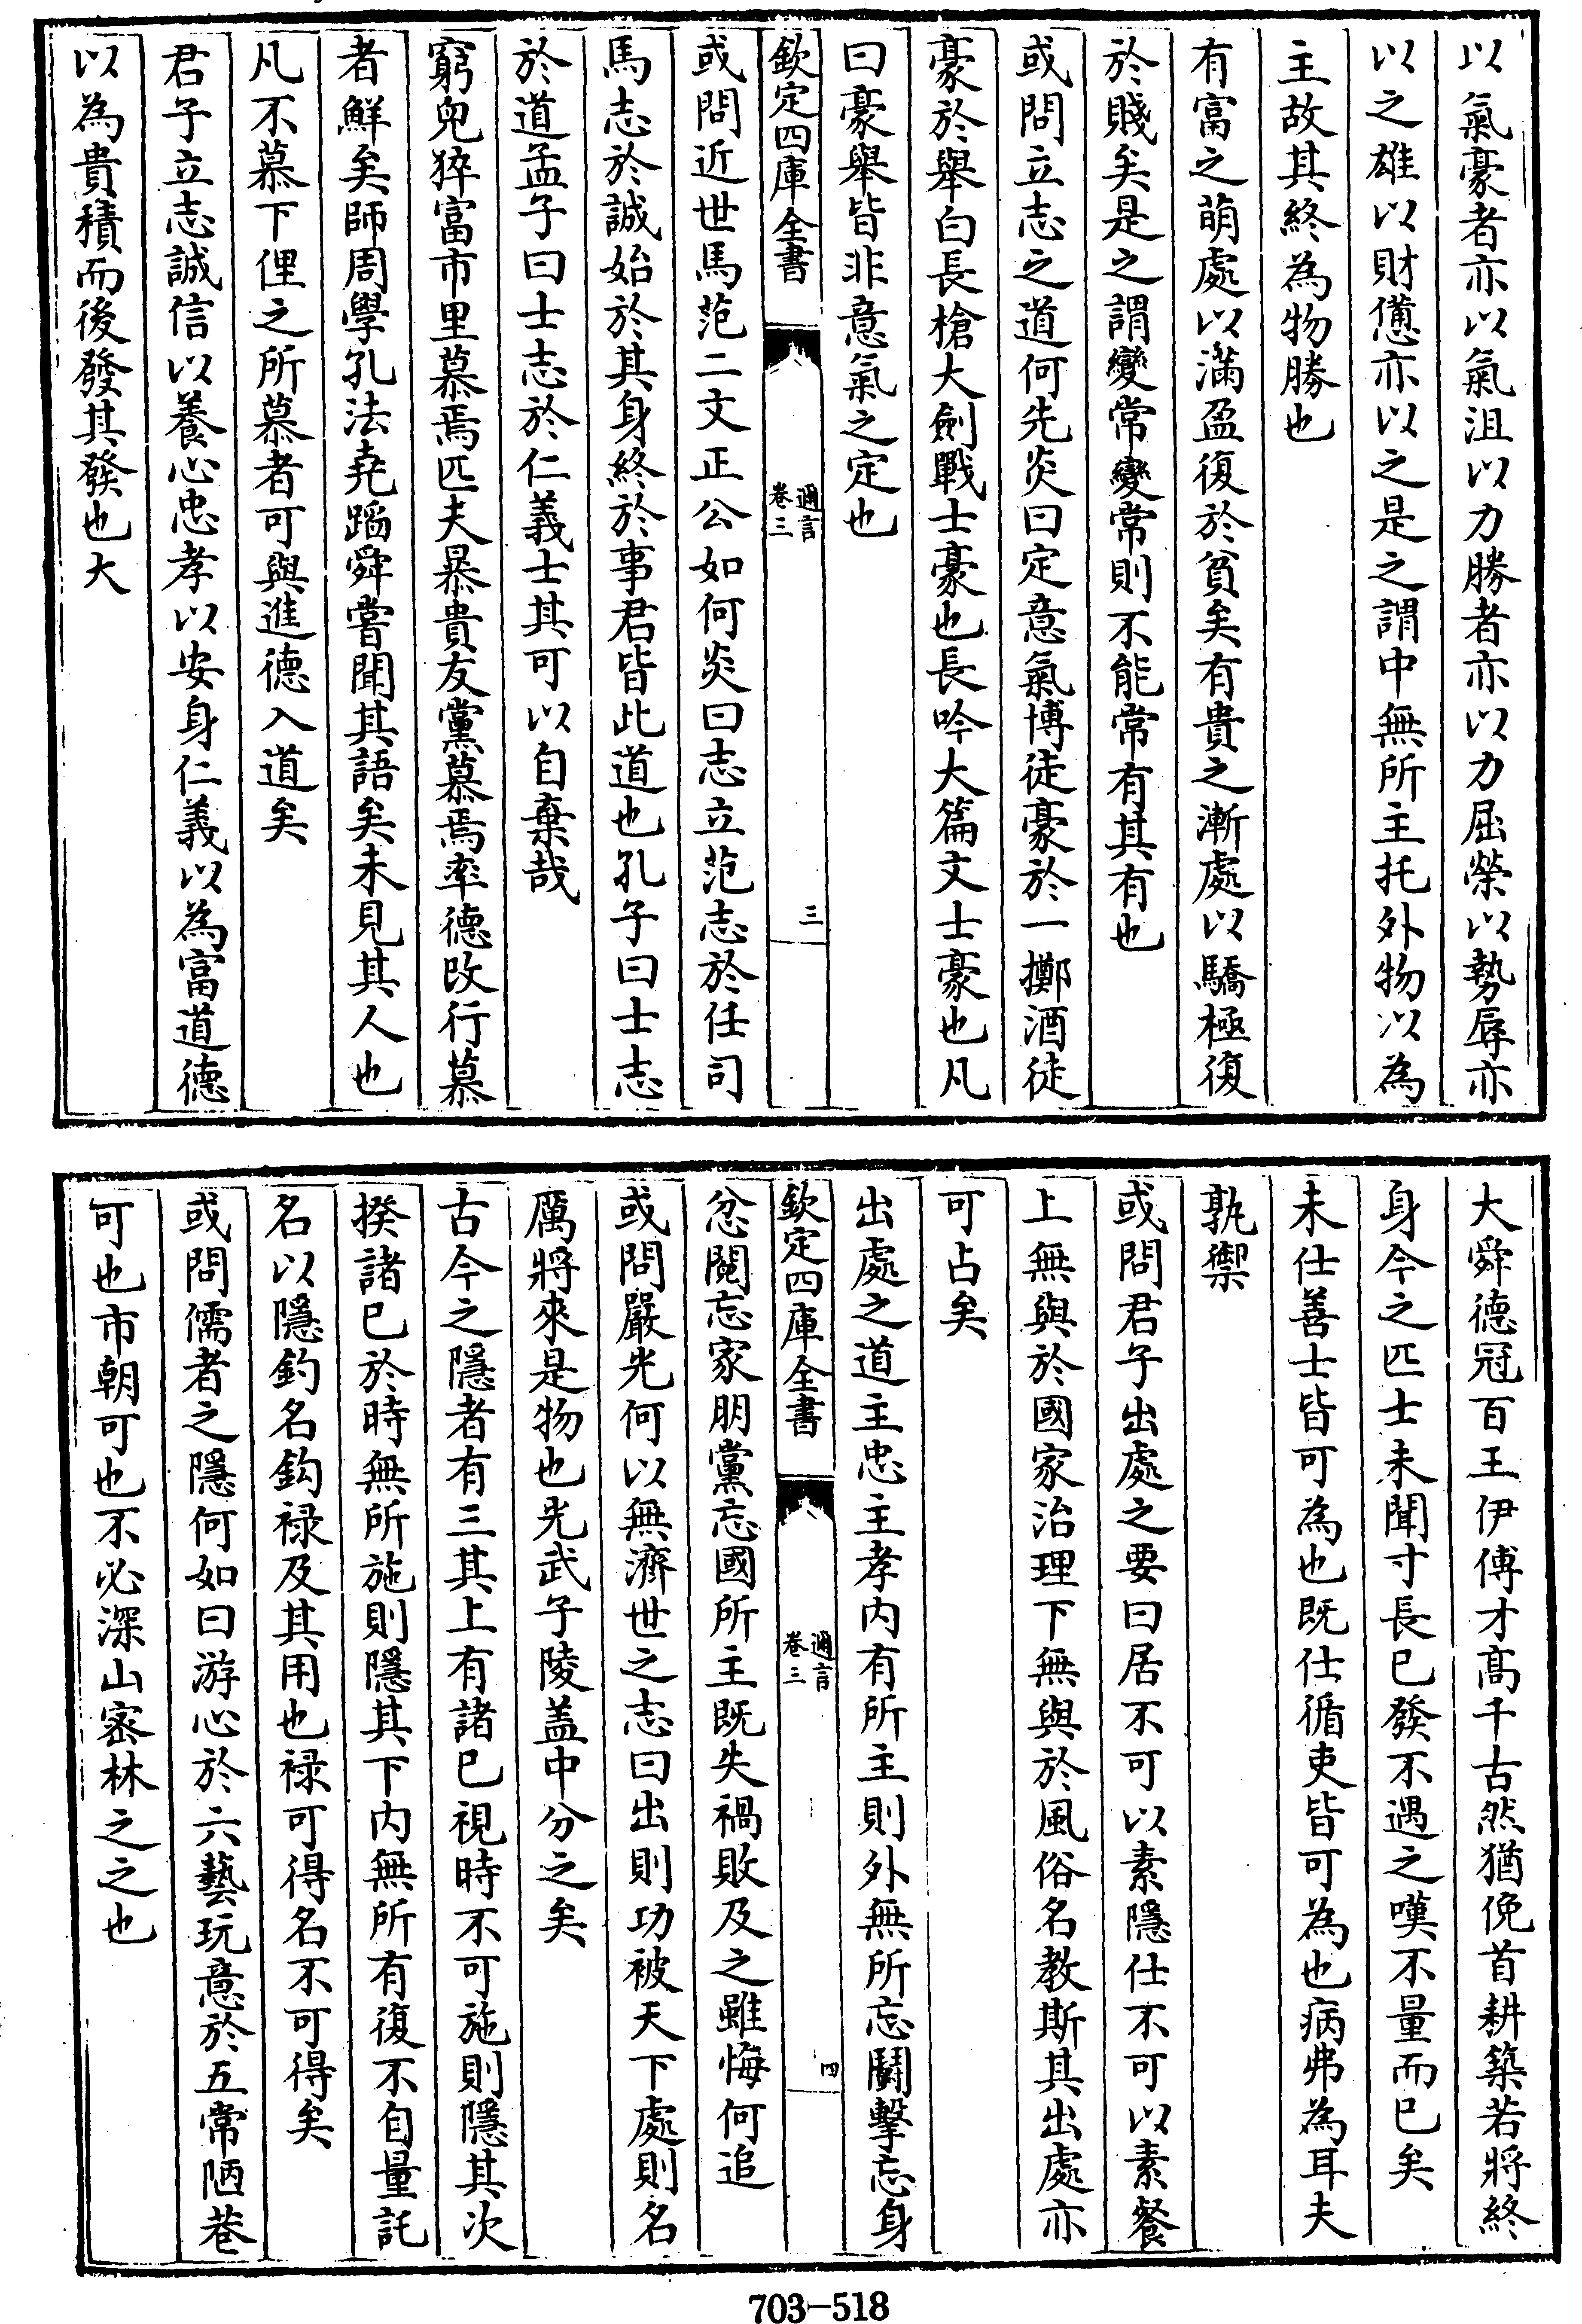 以氣豪者亦以氣沮以力勝者亦以力屈榮以勢辱亦
以之雄以財憊亦以之是之謂中無所主托外物以為
主故其終為物勝也
有富之萌處以滿盈復於貧矣有貴之漸處以驕極復
於賤矣是之謂變常變常則不能常有其有也
或問立志之道何先炎曰定意氣博徒豪於一擲酒徒
豪於舉白長槍大劍戰士豪也長吟大篇文士豪也凡
曰豪舉皆非意氣之定也
欽定四庫全書
邇言
卷三
三
或問近世馬范二文正公如何炎曰志立范志於任司
馬志於誠始於其身終於事君皆此道也孔子曰士志
於道孟子曰士志於仁義士其可以自棄哉
窮兒猝富市里慕焉匹夫暴貴友黨慕焉率德改行慕
者鮮矣師周學孔法堯蹈舜嘗聞其語矣未見其人也
凡不慕下俚之所慕者可與進德入道矣
君子立志誠信以養心忠孝以安身仁義以為富道德
以為貴積而後發其發也大
大舜德冠百王伊傅才高千古然猶俛首耕築若將終
身今之匹士未聞寸長已發不遇之嘆不量而已矣
未仕善士皆可為也既仕循吏皆可為也病弗為耳夫
孰禦
或問君子出處之要曰居不可以素隱仕不可以素餐
上無與於國家治理下無與於風俗名教斯其出處亦
可占矣
出處之道主忠主孝内有所主則外無所忘鬭擊忘身
欽定四庫全書
邇言
卷三
四
忿閱忘家朋黨忘國所主既失禍敗及之雖悔何追
或問嚴光何以無濟世之志曰出則功被天下處則名
厲將來是物也光武子陵盖中分之矣
古今之隱者有三其上有諸已視時不可施則隱其次
揆諸已於時無所施則隱其下内無所有復不自量託
名以隱釣名鈎禄及其用也禄可得名不可得矣
或問儒者之隱何如曰游心於六藝玩意於五常陋巷
可也市朝可也不必深山密林之之也
703-518